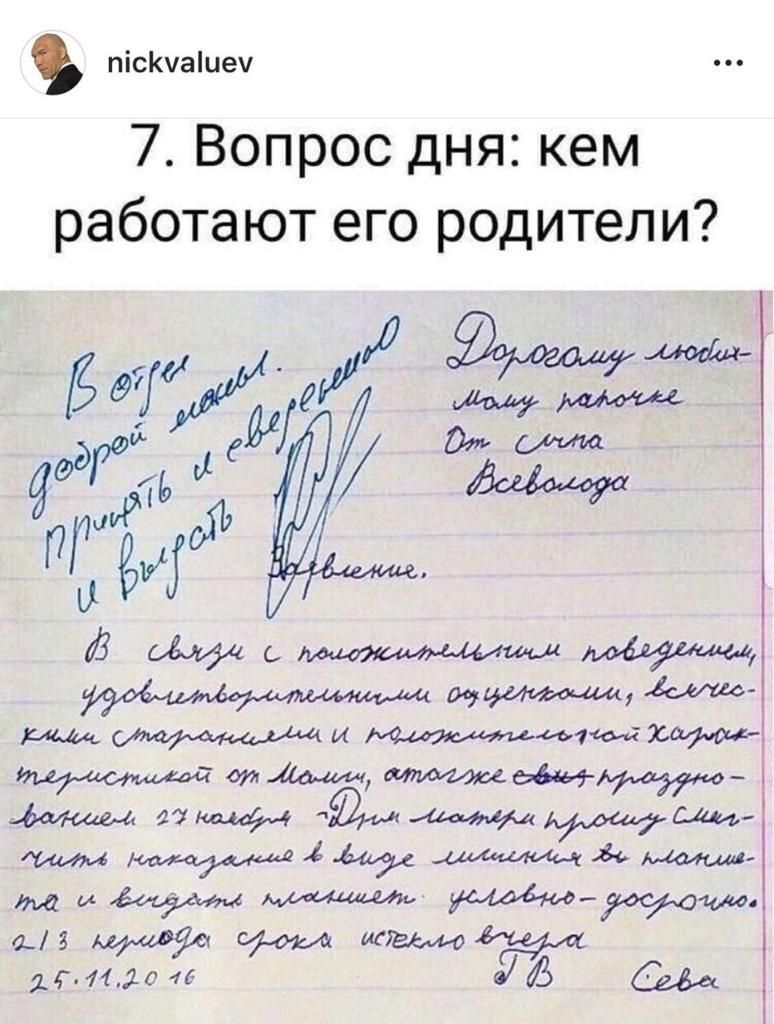 nickvaluev
7. Вопрос дня: кем
работают его родители?
В отдел
доброй мамы.
принять к сведению
и выдать
Дорогому любим-
мому папочке
От сына
Всеволода
Заявление.
В связи с положительным поведением,
удовлетворительными оценками, всячес-
кими стараниями и положительной харак-
теристикой от Мамы, а также праздно-
ванием 27 ноября - Дня матери прошу смяг-
чить наказание в виде лишения планше-
та и выдать планшет условно-досрочно.
2/3 периода срока истекло вчера
25.11.2016 ГВ Сева